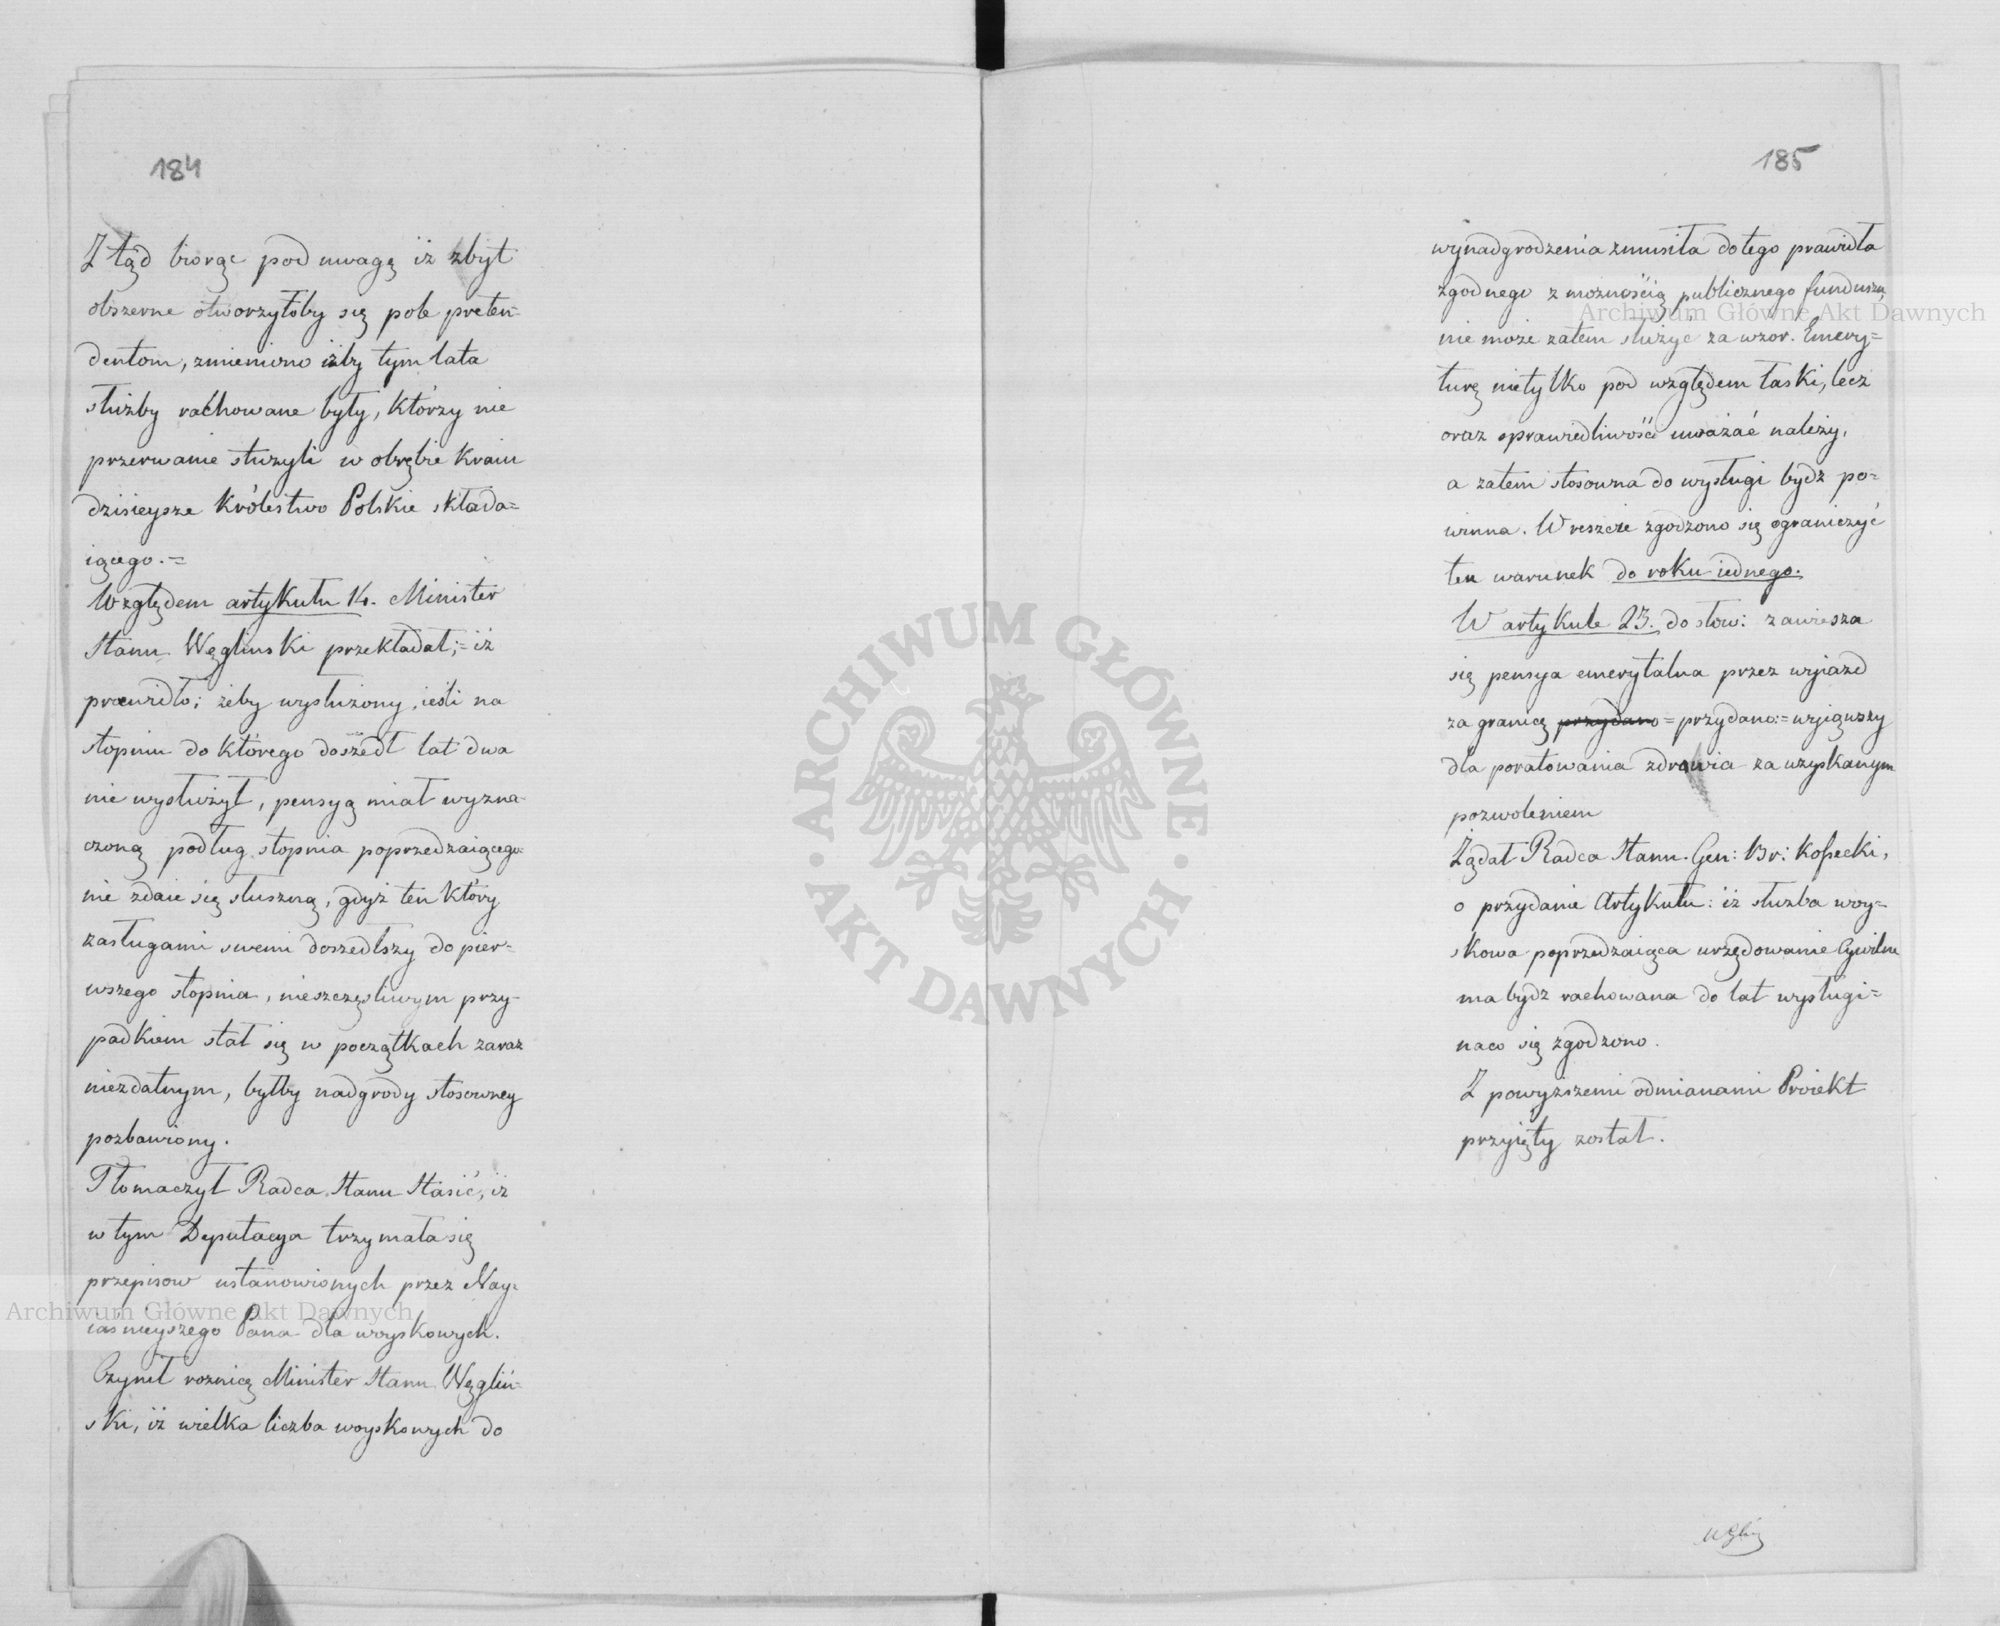 184
Ztąd biorąc pod uwagę iż zbyt
obszerne otworzyłoby się pole preten=
dentom, zmieniono iżby tym lata
służby rachowane były, którzy nie
przerwanie służyli w obrębie kraiu
dzisieysze Królestwo Polskie składa=
iącego.=
Względem artykułu 14. Minister
Stanu Węgliński przekładał;= iż
prawidło; żeby wysłużony, ieśli na
stopniu do którego doszedł lat dwa
nie wysłużył, pensyą miał wyzna-
czoną podług stopnia poprzedzaiącego.
nie zdaie się słuszną, gdyż ten który
zasługami swemi doszedłszy do pier=
wszego stopnia, nieszczęśliwym przy-
padkiem stał się w początkach zaraz
niezdatnym, byłby nadgrody stosowney
pozbawiony.
Tłomaczył Radca Stanu Stasic, iż
w tym Deputacya trzymała się
przepisow ustanowionych przez Nay-
iasnieyszego Pana dla woyskowych.
Czynił roznicę Minister Stanu Węgliń-
ski, iż wielka liczba woyskowych do
185
wynadgrodzenia zmusiła do tego prawidła
zgodnego z możnością publicznego funduszu,
nie może zatem służyć za wzor. Emery=
turę nietylko pod względem łaski, lecz
oraz sprawiedliwości uważać należy,
a zatem stosowna do wysługi bydz po=
winna. Wreszcie zgodzono się ograniczyć
ten warunek do roku iednego.
W artykule 23. do słow: zawiesza
się pensya emerytalna przez wyiazd
za granicę przydano = przydano:= wyiąwszy
dla poratowania zdrowia za uzyskanym
pozwoleniem
Żądał Radca Stanu. Gen: Br: Kossecki,
o przydanie Artykułu: iż służba woy=
skowa poprzedzaiąca urzędowanie Cywilne
ma bydz rachowana do lat wysługi=
naco się zgodzono.
Z powyższemi odmianami Proiekt
przyięty został.
Archiwum Główne Akt Dawnych
Archiwum Główne Akt Dawnych
ARCHIWUM GŁÓWNE · AKT DAWNYCH ·